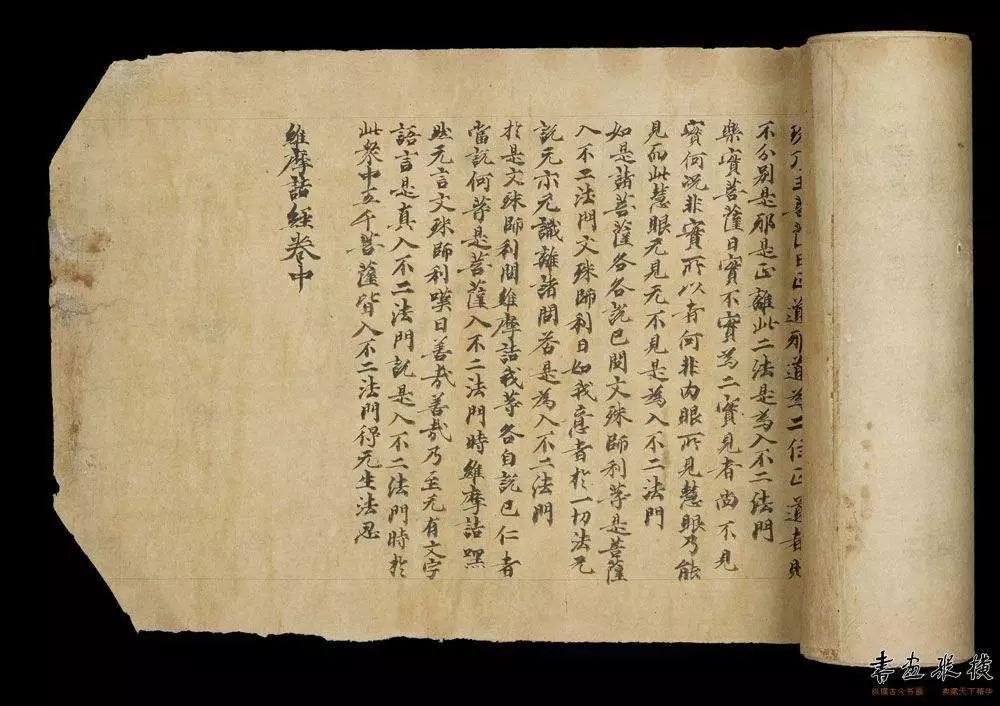 王菩薩曰正道邪道為二住正道者則
不分別是邪是正離此二法是為入不二法門
樂實菩薩曰實不實為二實見者尚不見
實何況非實所以者何非肉眼所見慧眼乃能
見而此慧眼无見无不見是為入不二法門
如是諸菩薩各各說已問文殊師利等是菩薩
入不二法門文殊師利曰如我意者於一切法无
說无示无識離諸問答是為入不二法門
於是文殊師利問維摩詰我等各自說已仁者
當說何等是菩薩入不二法門時維摩詰嘿
然无言文殊師利嘆曰善哉善哉乃至无有文字
語言是真入不二法門說是入不二法門時於
此眾中五千菩薩皆入不二法門得无生法忍
維摩詰經卷中
書畫縱橫
纵横古今书画 典藏天下精华